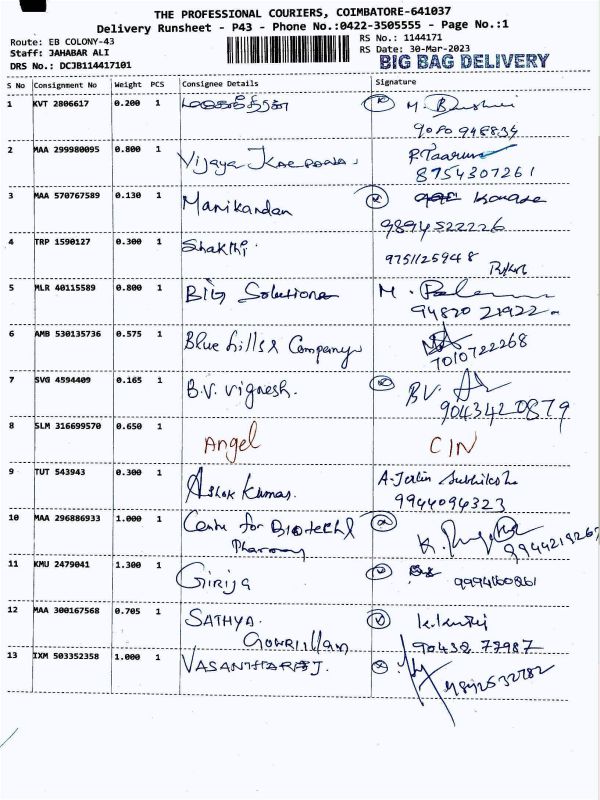 THE PROFESSIONAL COURIERS, COIMBATORE-641037
Delivery Runsheet - P43 - Phone No.:0422-3505555 - Page No.:1
Route: EB COLONY-43
RS No.: 1144171
Staff: JAHABAR ALI
RS Date: 30-Mar-2023
DRS No.: DCJB114417101
BIG BAG DELIVERY
S No Consignment No Weight PCS Consignee Details Signature
1 KVT 2806617 0.200 1 M.
2 MAA 299980095 0.800 1 Vijaya
8754307261
3 MAA 570767589 0.130 1 Manikandan
9894522226
4 TRP 1590127 0.300 1 Shakthi.
9751125948
5 MLR 40115589 0.800 1 BIG Solutions M.
94820 21922
6 AMB 530135736 0.575 1 Blue hills & Company
7010722268
7 SVG 4594409 0.165 1 B.V. Vignesh. BV.
9043420879
8 SLM 316699570 0.650 1 Angel CIN
9 TUT 543943 0.300 1 Ashok Kumar. A.
9944094323
10 MAA 296886933 1.000 1 Centre for Biotech & K.
Pharmacy
11 KMU 2479041 1.300 1 Girija
12 MAA 300167568 0.705 1 SATHYA.
90432 77987
13 IXM 503352358 1.000 1 VASANTHARAJ.